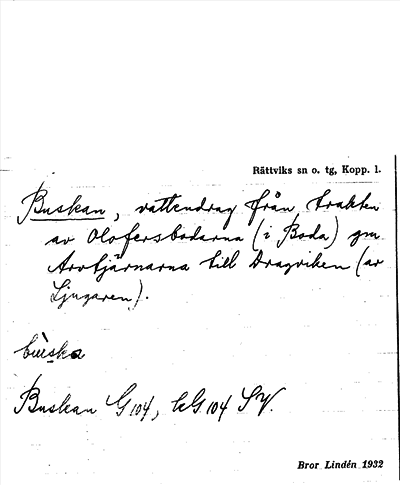 Rättviks sn o. tg, Kopp. l.
Buskan, vattendrag från trakten
av Olofersbodarna (i Boda) gm
Arvtjärnarna till Dragviken (av
Ljugaren).
Buskan G 104, kG 104 SV.
Bror Lindén 1932